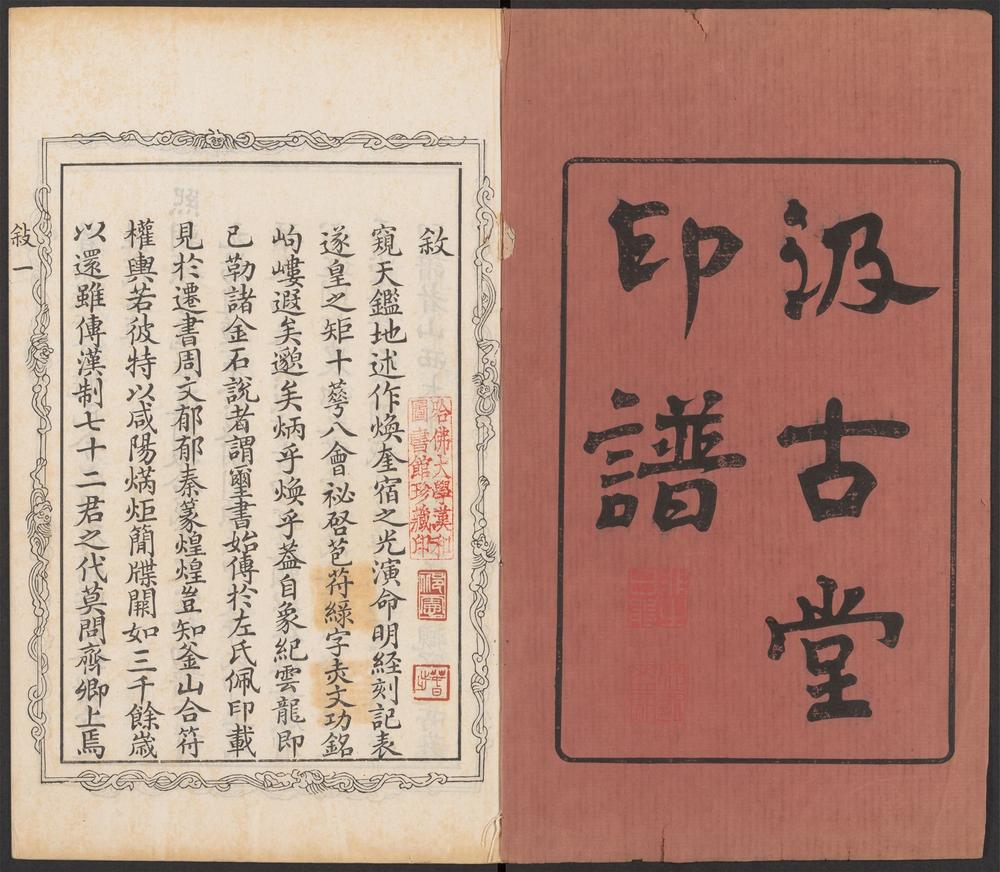 汲古堂
印譜
敘
窺天鑑地述作煥奎宿之光演命明經刻記表
遂皇之矩十蕚八會祕啓苞符綠字夾文功銘
岣嶁遐矣邈矣炳乎煥乎葢自象紀雲龍即
已勒諸金石說者謂璽書始傳於左氏佩印載
見於遷書周文郁郁秦篆煌煌豈知釜山合符
權輿若彼特以咸陽煱炬簡牒闕如三千餘歲
以還雖傳漢制七十二君之代莫問齊卿上焉
敘一
哈佛大學漢和
圖書館珍藏印